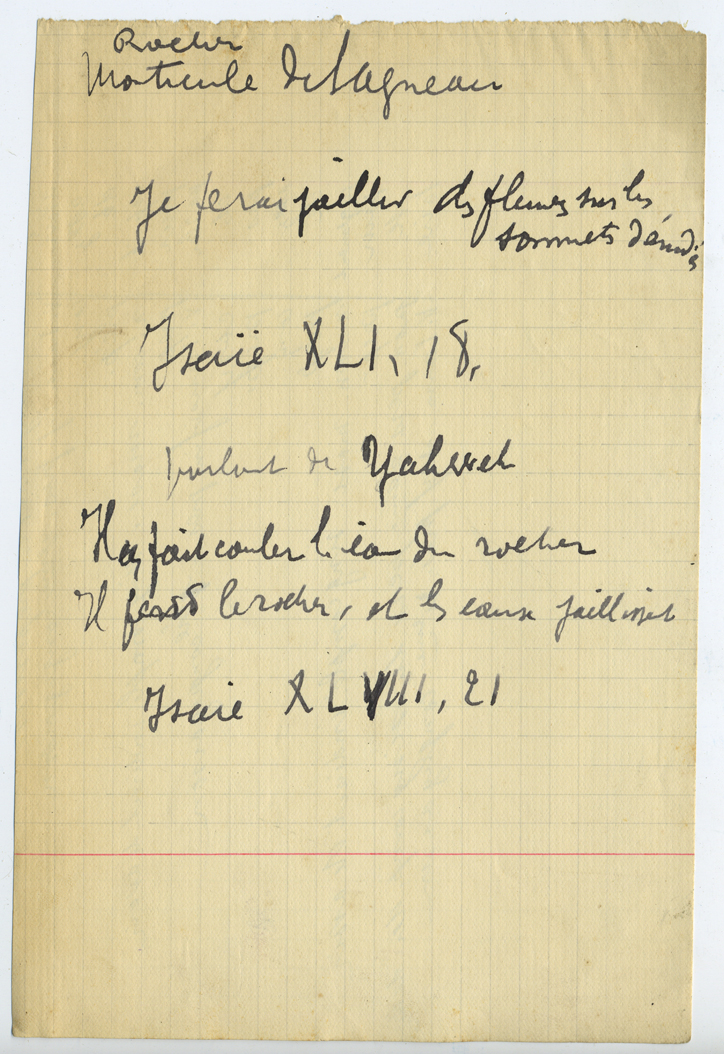 Rocher
Monticule de l'Agneau
Je ferai jaillir des fleuves sur les
sommets dénudés
Isaïe XLI, 18,
parlant de Yahweh
Il a fait couler l'eau du rocher
Il fend le rocher, et les eaux jaillissent
Isaie XLVIII, 21